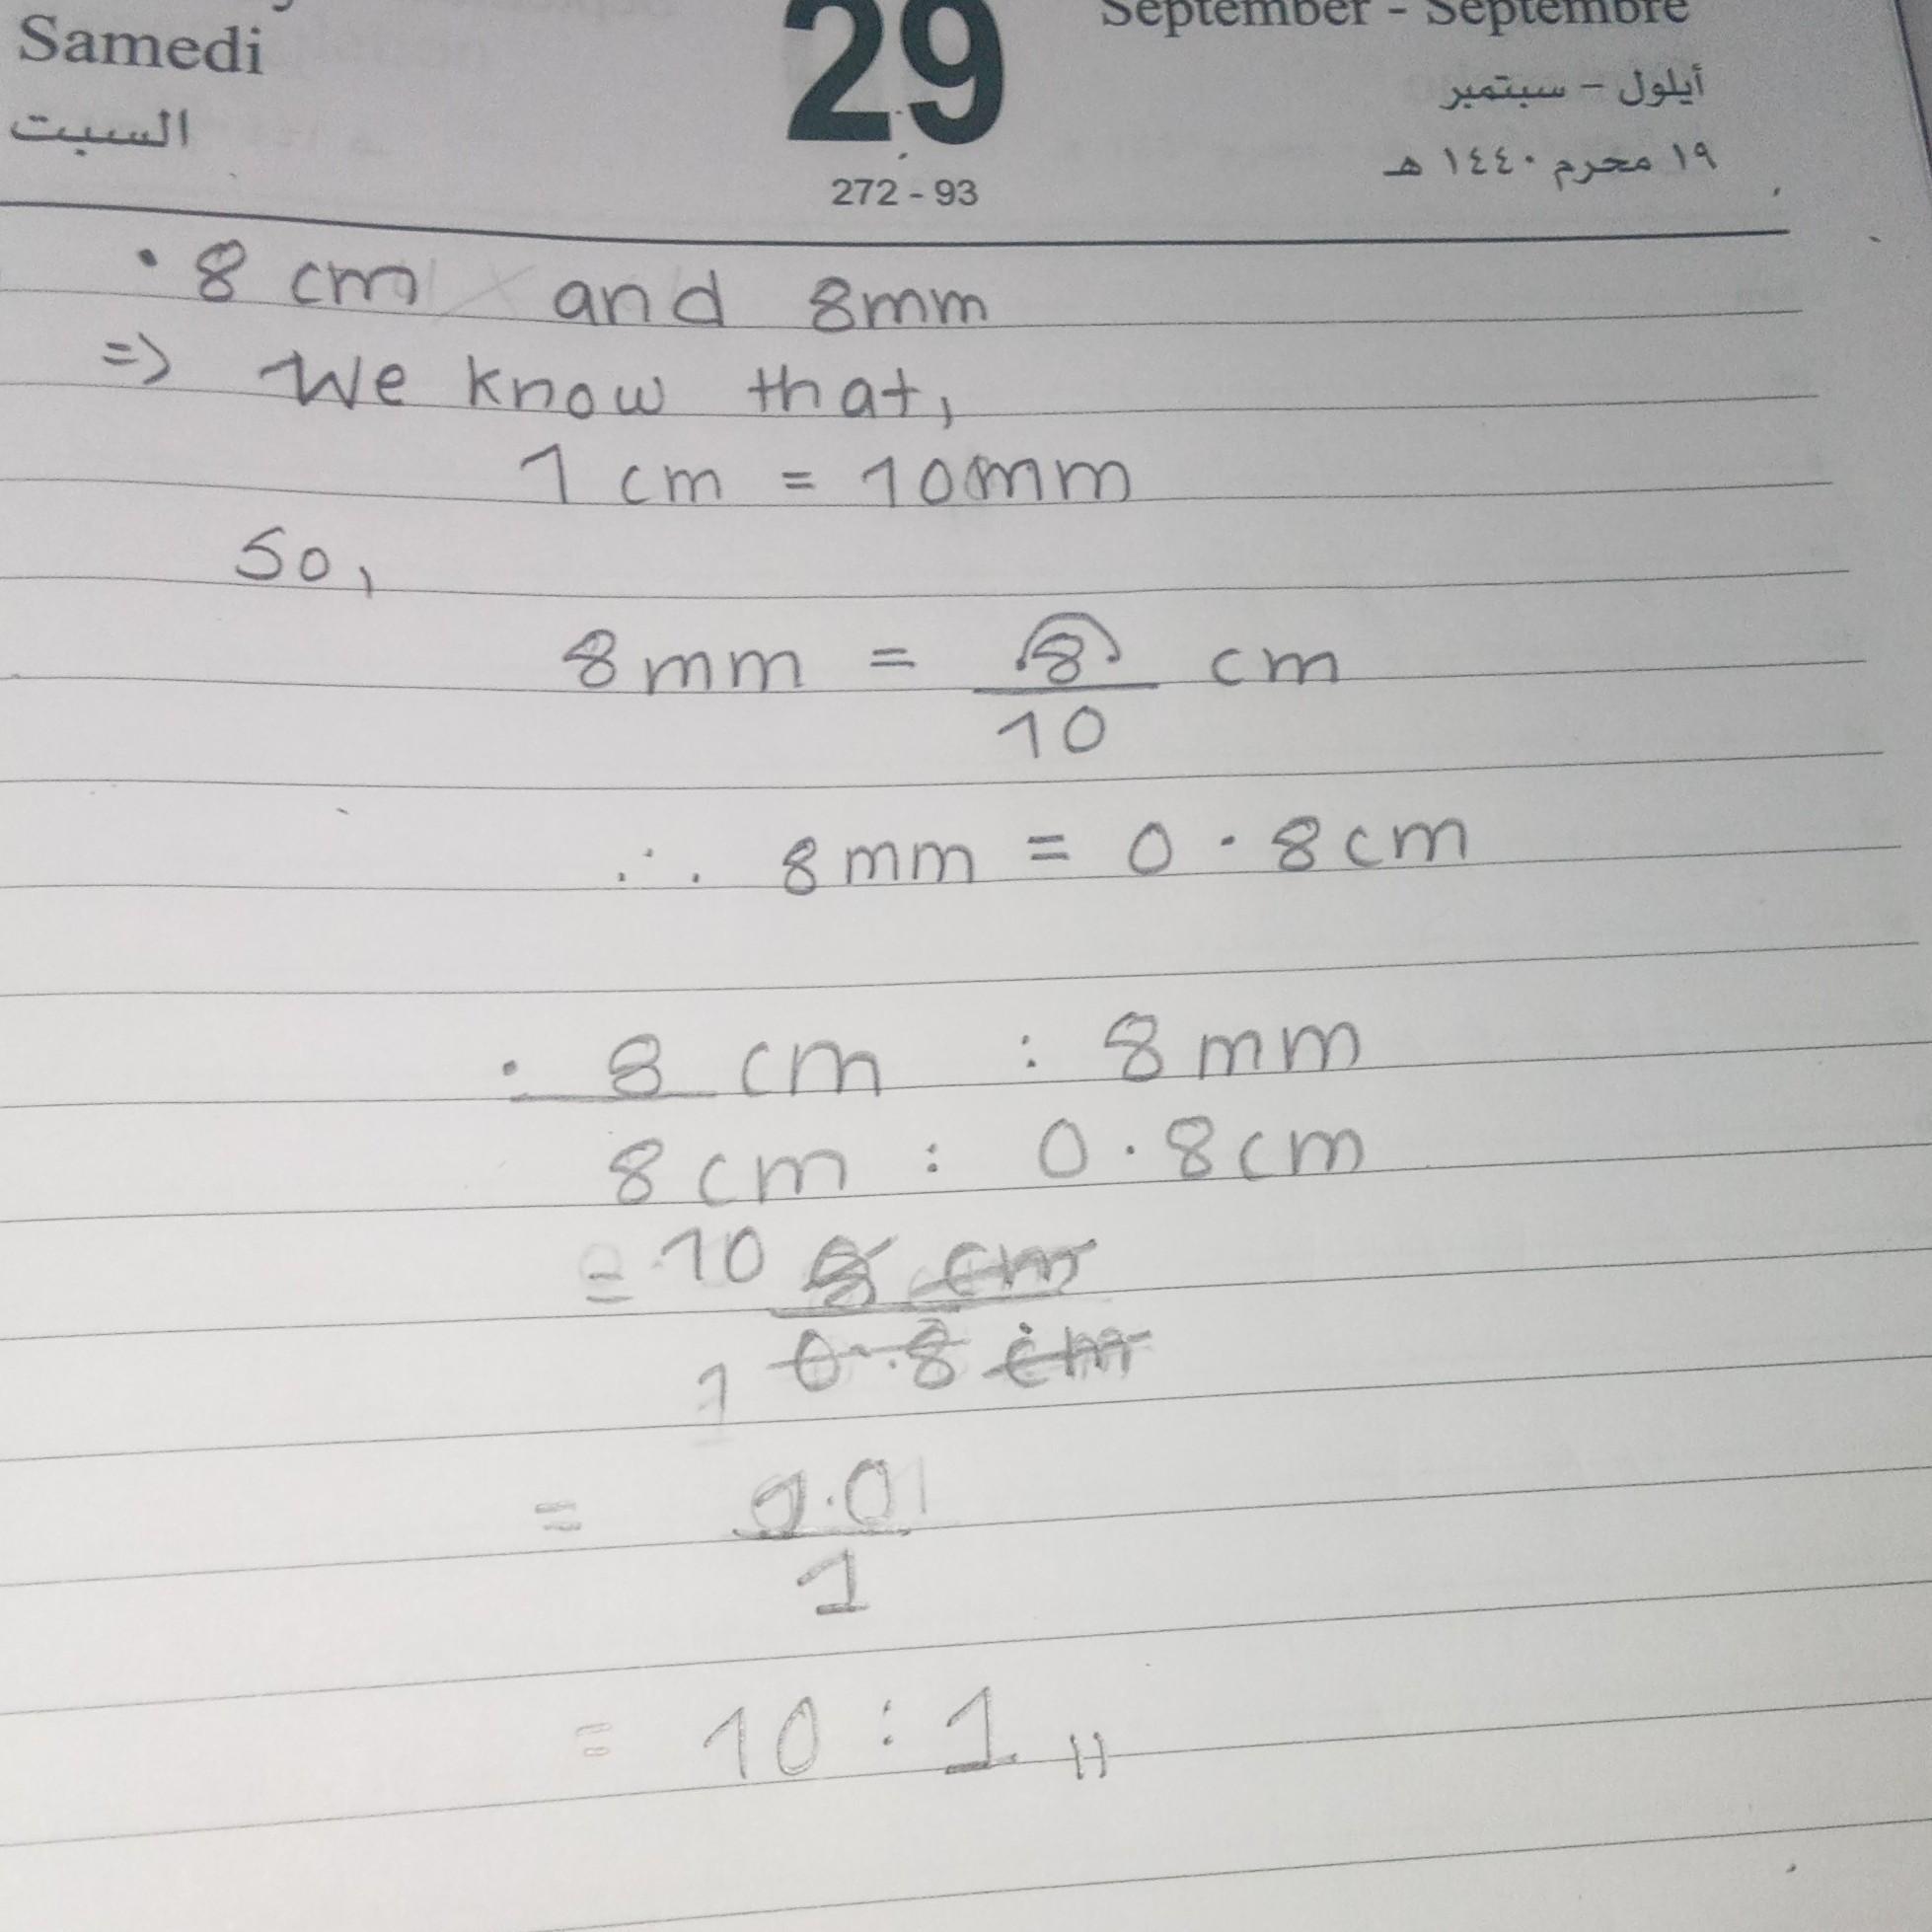 Samedi
السبت
29
272 - 93
September - Septembre
أيلول - سبتمبر
١٩ محرم ١٤٤٠ هـ
· 8 cm and 8mm
=> We know that,
1 cm = 10mm
So,
8mm = 8/10 cm
∴ 8mm = 0.8cm
· 8 cm : 8mm
8cm : 0.8cm
= 10 8 cm
1 0.8 cm
= 10
1
= 10 : 1 "